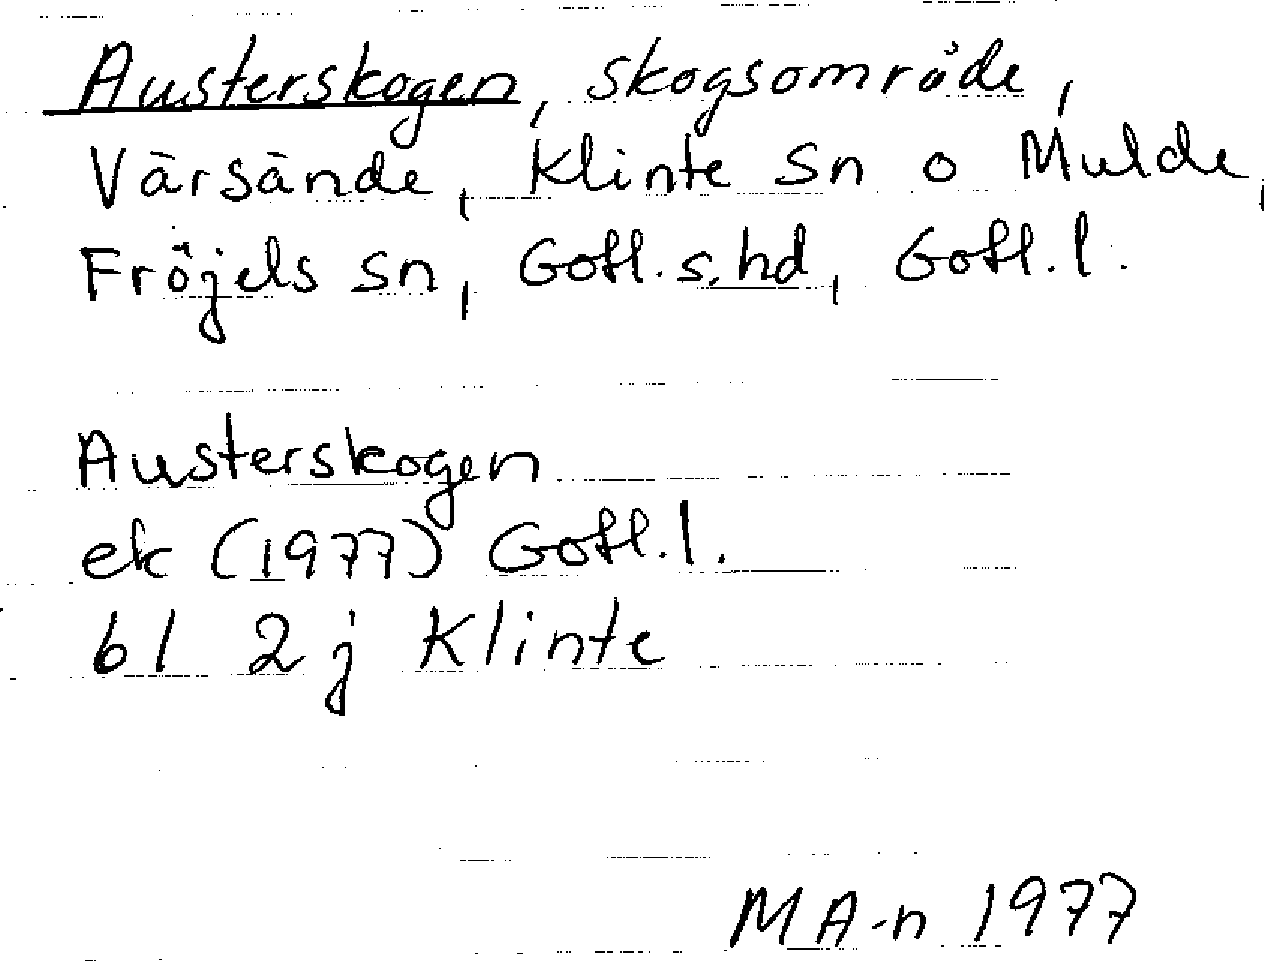 Austerskogen, skogsområde,
Värsände, Klinte sn o Mulde,
Fröjels sn, Gotl. s. hd, Gotl. l.
Austerskogen
ek (1977) Gotl. l.
bl 2 j Klinte
MA-n 1977